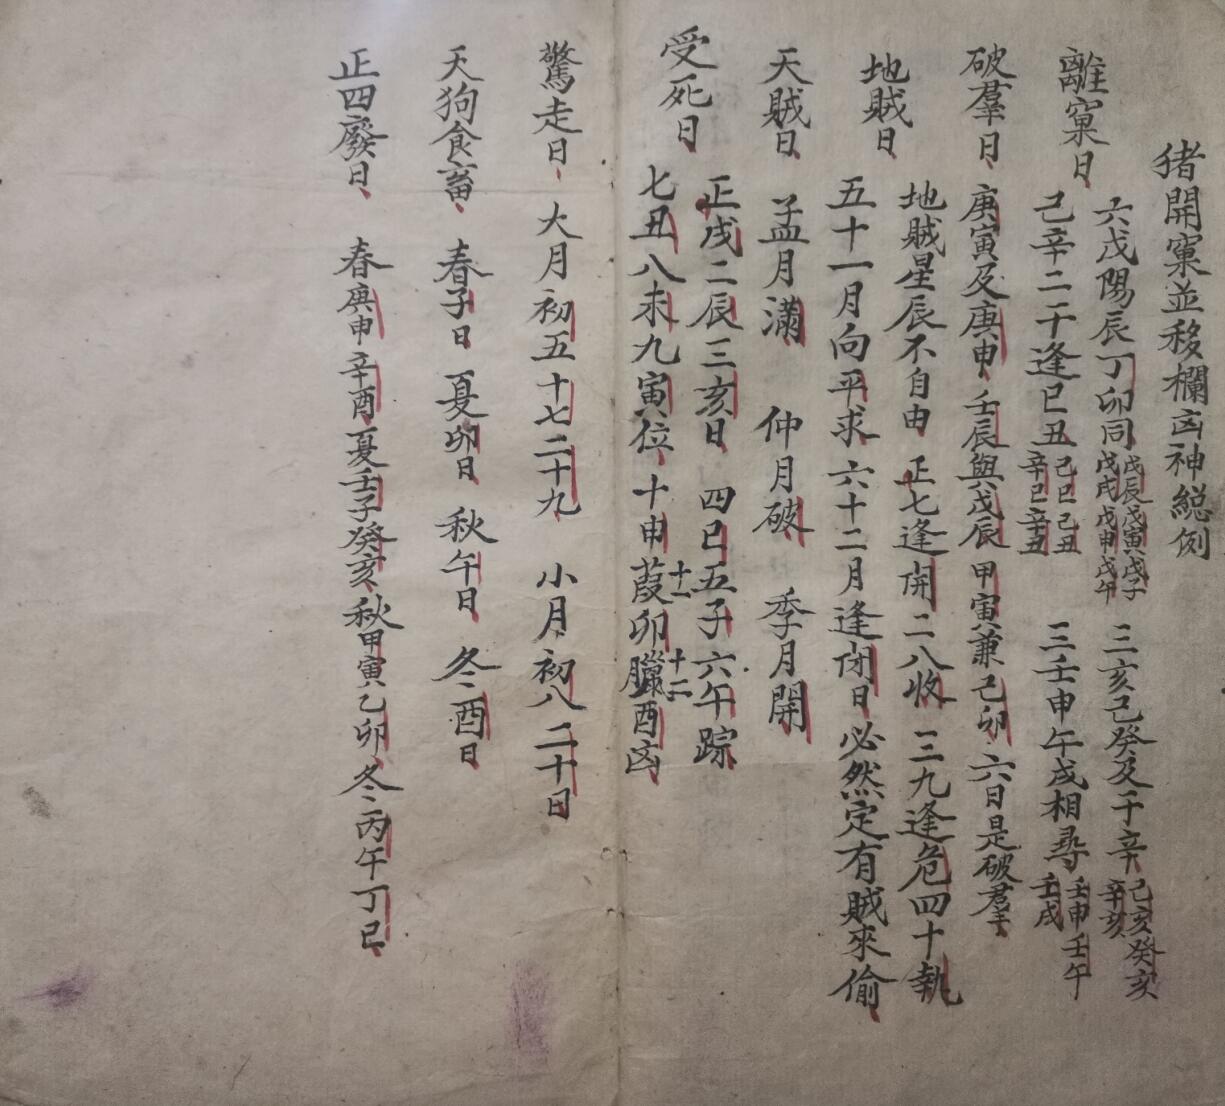 猪開窠並移欄凶神緫例
離窠日
六戊陽辰丁卯同
戊辰戊寅戊子
戊戌戊申戊午
三亥己癸及干辛
己亥癸亥
辛亥
己辛二干逢巳丑
己巳己丑
辛巳辛丑
三壬申午戌相尋
壬申壬午
壬戌
破羣日 庚寅及庚申 壬辰與戊辰 甲寅兼己卯 六日是破羣
地賊日
地賊星辰不自由 正七逢開二八收 三九逢危四十執
五十一月向平求 六十二月逢閉日 必然定有賊來偷
天賊日 孟月滿 仲月破 季月開
受死日
正戌二辰三亥日 四巳五子六午踪
七丑八未九寅位 十申十一葭卯十二臘酉凶
驚走日 大月初五十七二十九 小月初八二十日
天狗食畜 春子日 夏卯日 秋午日 冬酉日
正四廢日 春庚申辛酉夏壬子癸亥秋甲寅乙卯冬丙午丁巳